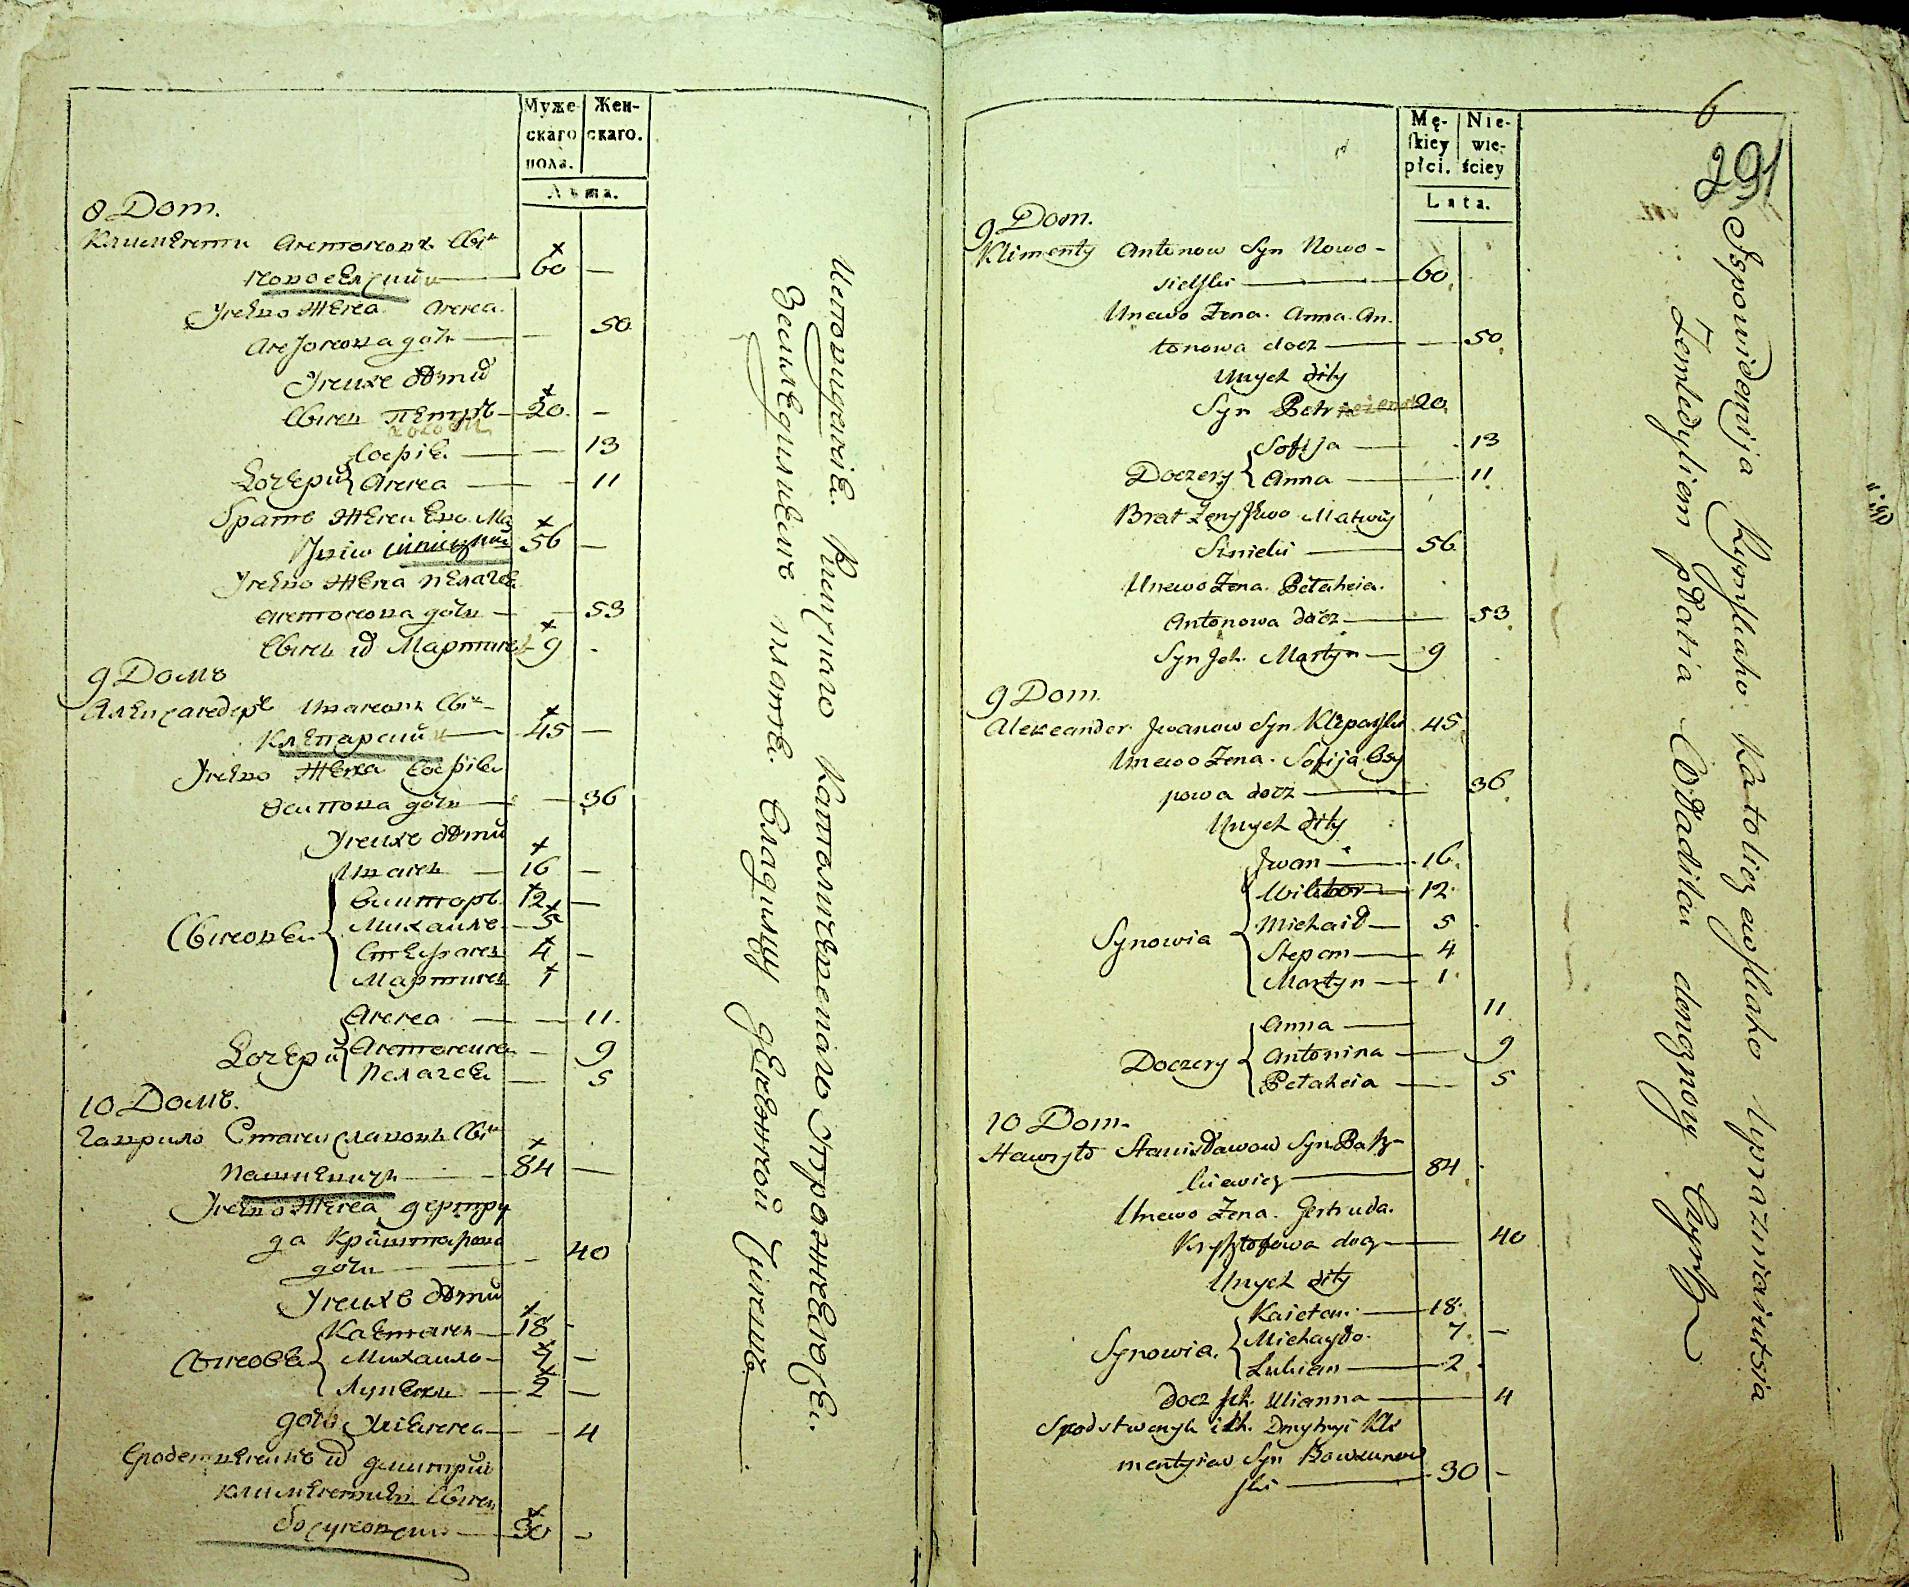 Муже-
скаго
пола.
Жен-
скаго.
Лѣта.
8 Дом.
Климентiи Антоновъ Сынъ
Новоселский 60 —
У него жена Анна
Антонова дочь — 50
У нихъ дѣти
Сынъ Петръ 20 —
Дочери Софiя — 13
Анна — 11
братъ жены его Ма
56 —
У него жена Пелагея
Антонова дочь — 53
Сынъ iй Мартинъ 9
9 Домъ
Александеръ Ивановъ Сынъ
Клепарский 45 —
У него жена Софiя
Осипова дочь — 36
У нихъ дѣти
Сыновья
Иванъ 16 —
Викторъ 12 —
Михаилъ 5
Стефанъ 4 —
Мартинъ 1
Дочери
Анна — 11
Антонина — 9
Пелагея — 5
10 Домъ.
Гаврило Станиславовъ Сынъ
84 —
У него жена гертру
да Криштафова
дочь — 40
У нихъ дѣти
Сыновья
Каетанъ 18
Михаило 7 —
Луцианъ 2 —
дочь Улiянна — 4
iй дмитрий
Климентиевъ Сынъ
30 —
Исповиданiя Римскаго Католическаго Упражняются
Земледилиемъ платя Складчину денежной Чиншъ
Mę-
skiey
płci.
Nie-
wie-
ściey
Lata.
6
291
9 Dom.
Klimenty Antonow Syn Nowo-
sielski — 60
Unewo Żena Anna An.
tonowa docz — 50
Unych dity
Syn Petr 20
Doczery Sofija — 13
Anna — 11
Brat Żeny Jewo Matwiy
Sinicki — 56
Unewo Żena Petaheia
Antonowa docz — 53
Syn Jeh. Martyn — 9
9 Dom.
Alexander Jwanow Syn Kleparski 45
Unewo Żena Sofija Osy
powa docz — 36
Unych dity
Synowia
Jwan — 16
Wiktor 12
Michaił — 5
Stepan — 4
Martyn — 1
Doczery
Anna — 11
Antonina — 9
Petaheia — 5
10 Dom.
Hawryło Stanisławow Syn Pasz-
kiewicz — 84
Unewo Żena Gertruda
Krysztofowa docz — 40
Unych dity
Synowia
Kaietan — 18
Michayło 7 —
Lukian — 2
docz Jch. Ulianna — 4
Dmytryi Kle
mentyiew Syn
ski — 30 —
Jspowidanija Rymskaho Katoliczewskaho Uprażniaiutsia
Zemledyliem płatia Składiku deneżnoy Czynsz